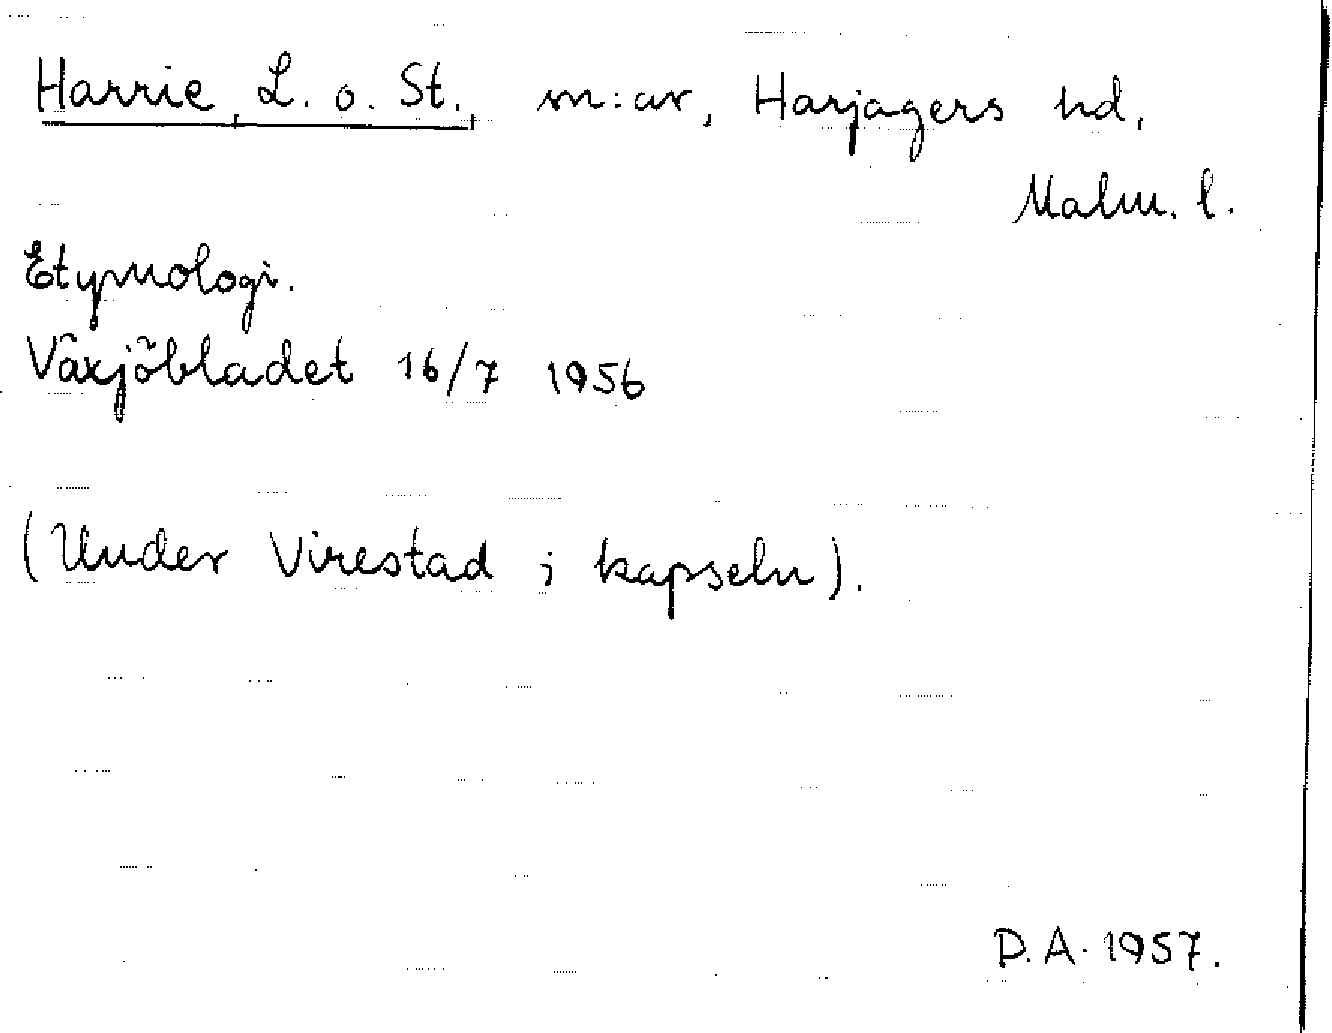 Harrie, L. o. St. sn:ar, Harjagers hd,
Malm. l.
Etymologi.
Växjöbladet 16/7 1956
(Under Virestad i kapseln).
D.A. 1957.